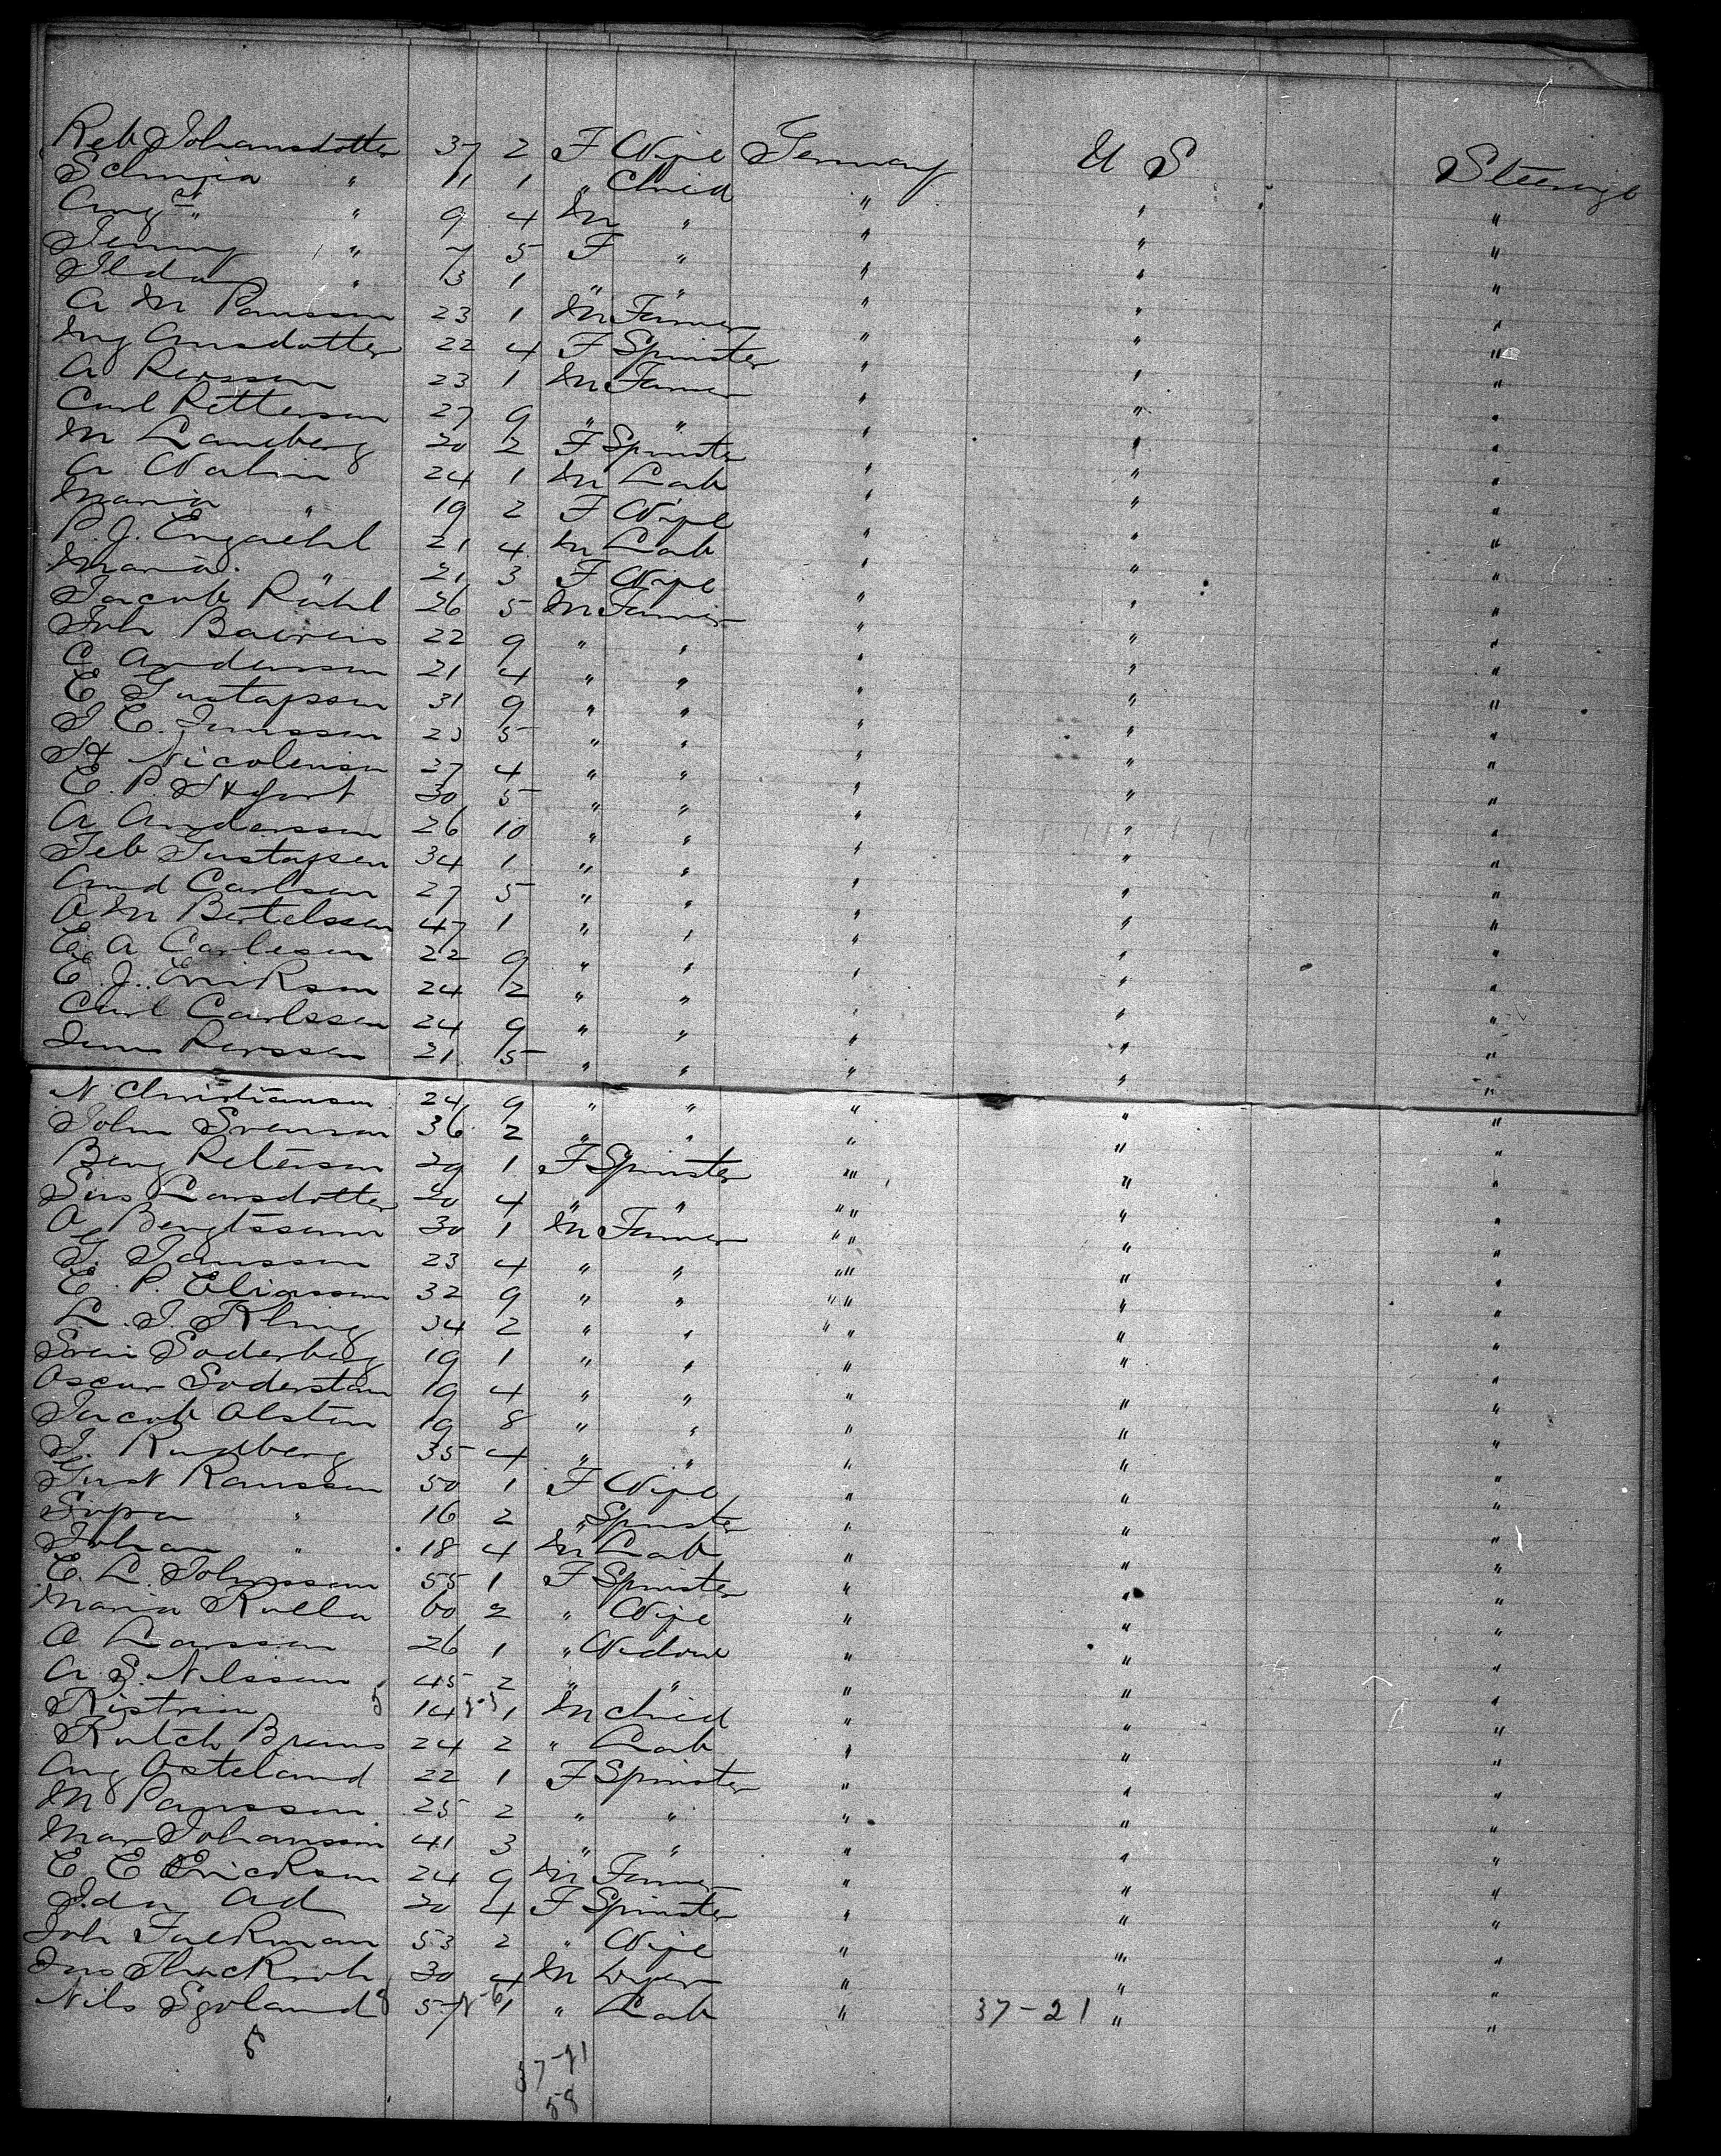 Reb Johansdotter 37 2 F Wife Germany U S Steerage
" 11 1 " Child " " "
Aug " " 9 4 M " " " "
Jenny " 7 5 F " " " "
Ilda " 13 1 " " " " "
A M Paulsson 23 1 M Farmer " " "
Ing Ansdotter 22 4 F Spinster " " "
A Persson 23 1 M Farmer " " "
Carl Petterson 27 9 " " " " "
M Landberg 20 2 F Spinster " " "
A Walin 24 1 M Lab " " "
Maria " 19 2 F Wife " " "
P. J. Engdehl 21 4 M Lab " " "
Maria " 21 3 F Wife " " "
Jacob Rühl 26 5 M Farmer " " "
Joh 22 9 " " " " "
C Anderson 21 4 " " " " "
E Gustafson 31 9 " " " " "
J. E. Jonsson 23 5 " " " " "
H Nicolenson 27 4 " " " " "
E. P. 30 5 " " " " "
A Anderssen 26 10 " " " " "
Feb Gustafsen 34 1 " " " " "
Amd Carlsen 27 5 " " " " "
A M Bertelssen 47 1 " " " " "
E. A Carleson 22 9 " " " " "
E. J. Erikson 24 2 " " " " "
Carl Carlssen 24 9 " " " " "
Persson 21 5 " " " " "
N Christianson 24 9 " " " " "
John Svenson 36 2 " " " " "
Beng Peterson 29 1 F Spinster " " "
Sus Larsdotter 20 4 " " " " "
A Bengtsson 30 1 M Farmer " " "
G. Jansson 23 4 " " " " "
E. P. Eliasson 32 9 " " " " "
L. J. Kling 34 2 " " " " "
Sven Soderberg 19 1 " " " " "
Oscar Soderstam 19 4 " " " " "
Jacob Alston 19 8 " " " " "
J. Rudberg 35 4 " " " " "
Gust Ransson 50 1 F Wife " " "
Sofia " 16 2 " Spinster " " "
Johan " 18 4 M Lab " " "
E. L. Johnsson 55 1 F Spinster " " "
Maria Kulla 60 2 " Wife " " "
A Larsson 26 1 " Widow " " "
A. S. Nilsson 45 2 " " " " "
Kistrin 5 14 1 M Child " " "
Kutch Bruns 24 2 " Lab " " "
Aug Osteland 22 1 F Spinster " " "
M Paulsson 25 2 " " " " "
Mar Johansson 41 3 " " " " "
E E Erickson 24 9 M Farmer " " "
Ida Ad 20 4 F Spinster " " "
Joh Falkman 53 2 " Wife " " "
Jns 30 4 M Dyer " " "
Nils Sgoland 57 1 " Lab " 37-21 " "
5
37-21
58